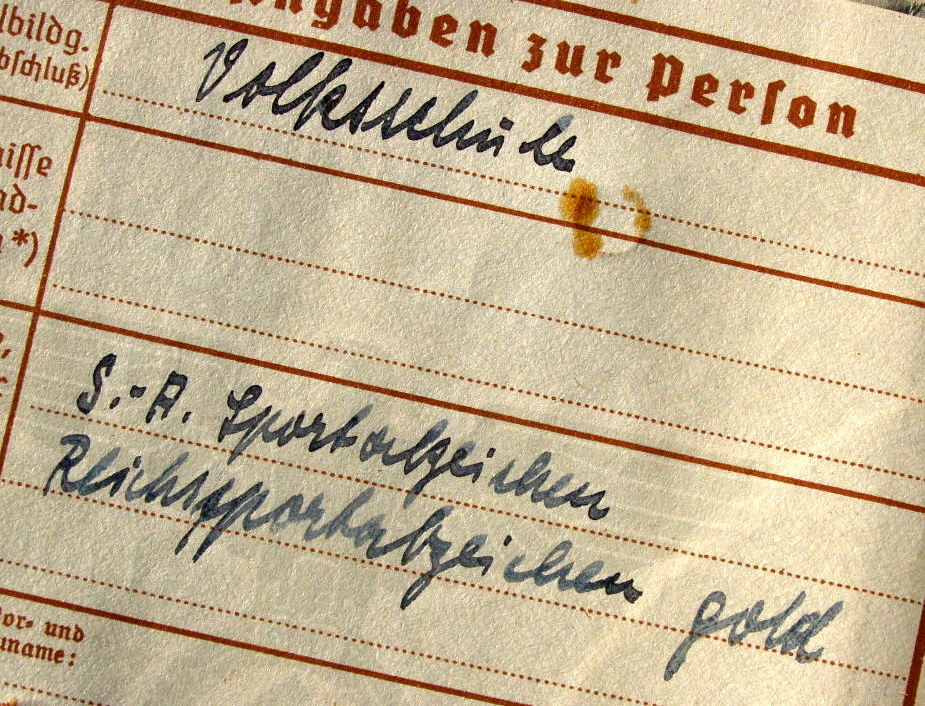 Angaben zur Person
lbildg.
bschluß)
Volksschule
nisse
nd-
*)
S.-A. Sportabzeichen
Reichssportabzeichen gold
or- und
uname: